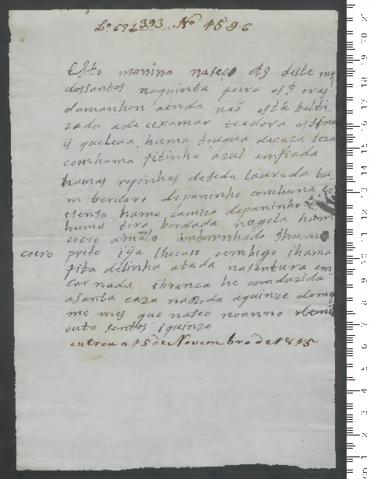 Lº 68 f 393 Nº 1596
Esta minina naseo A9 deste me
dossantos naquinta feira as 9 oras
damanhen ainda não está bati
zada ade cexamar teadora
is queleva huma touqua decaca leza
comhuma fitinha azul emfiada
humas ropinhas deseda laurada hu
m depaninho comhuma
esensa huma camiza depaninho
huma tira bordada
coeiro amarelo
coero
preto ija lhecaso oembigo ihuma
fita delinha atada nasentura em
carnada ibranca he comduzida
asanta caza naRoda aquinze domes
mo mes que naseo noanno demil
outo sentos iquinze
entrou a 15 de Novembro de 1815